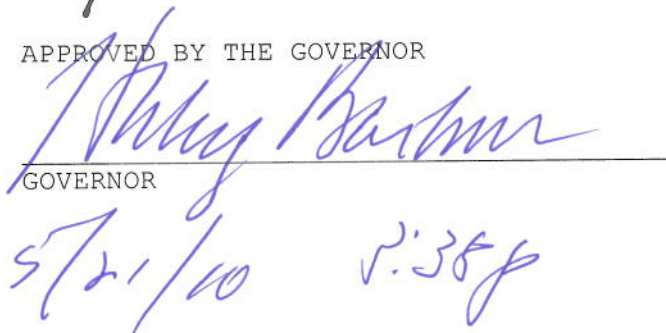 APPROVED BY THE GOVERNOR
Haley Barbour
GOVERNOR
5/21/10 :38 p